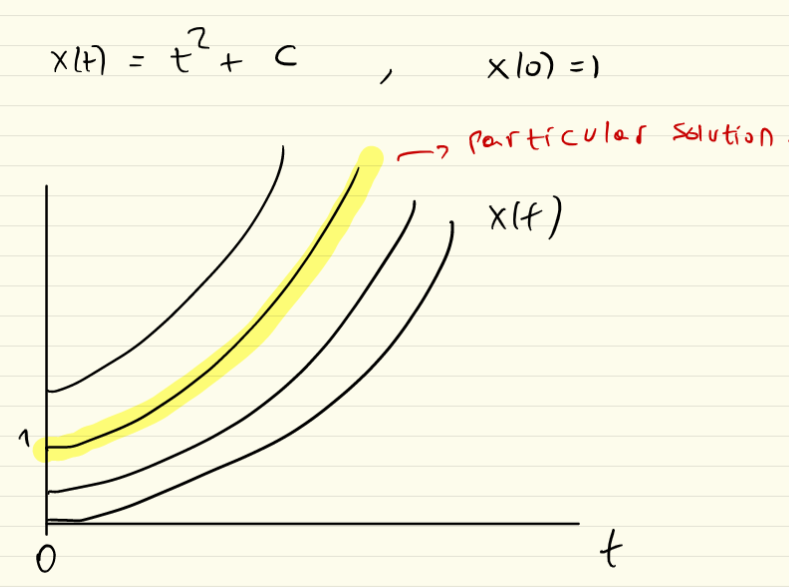 x(t) = t² + c , x(0) = 1
→ particular solution.
x(t)
1
0
t